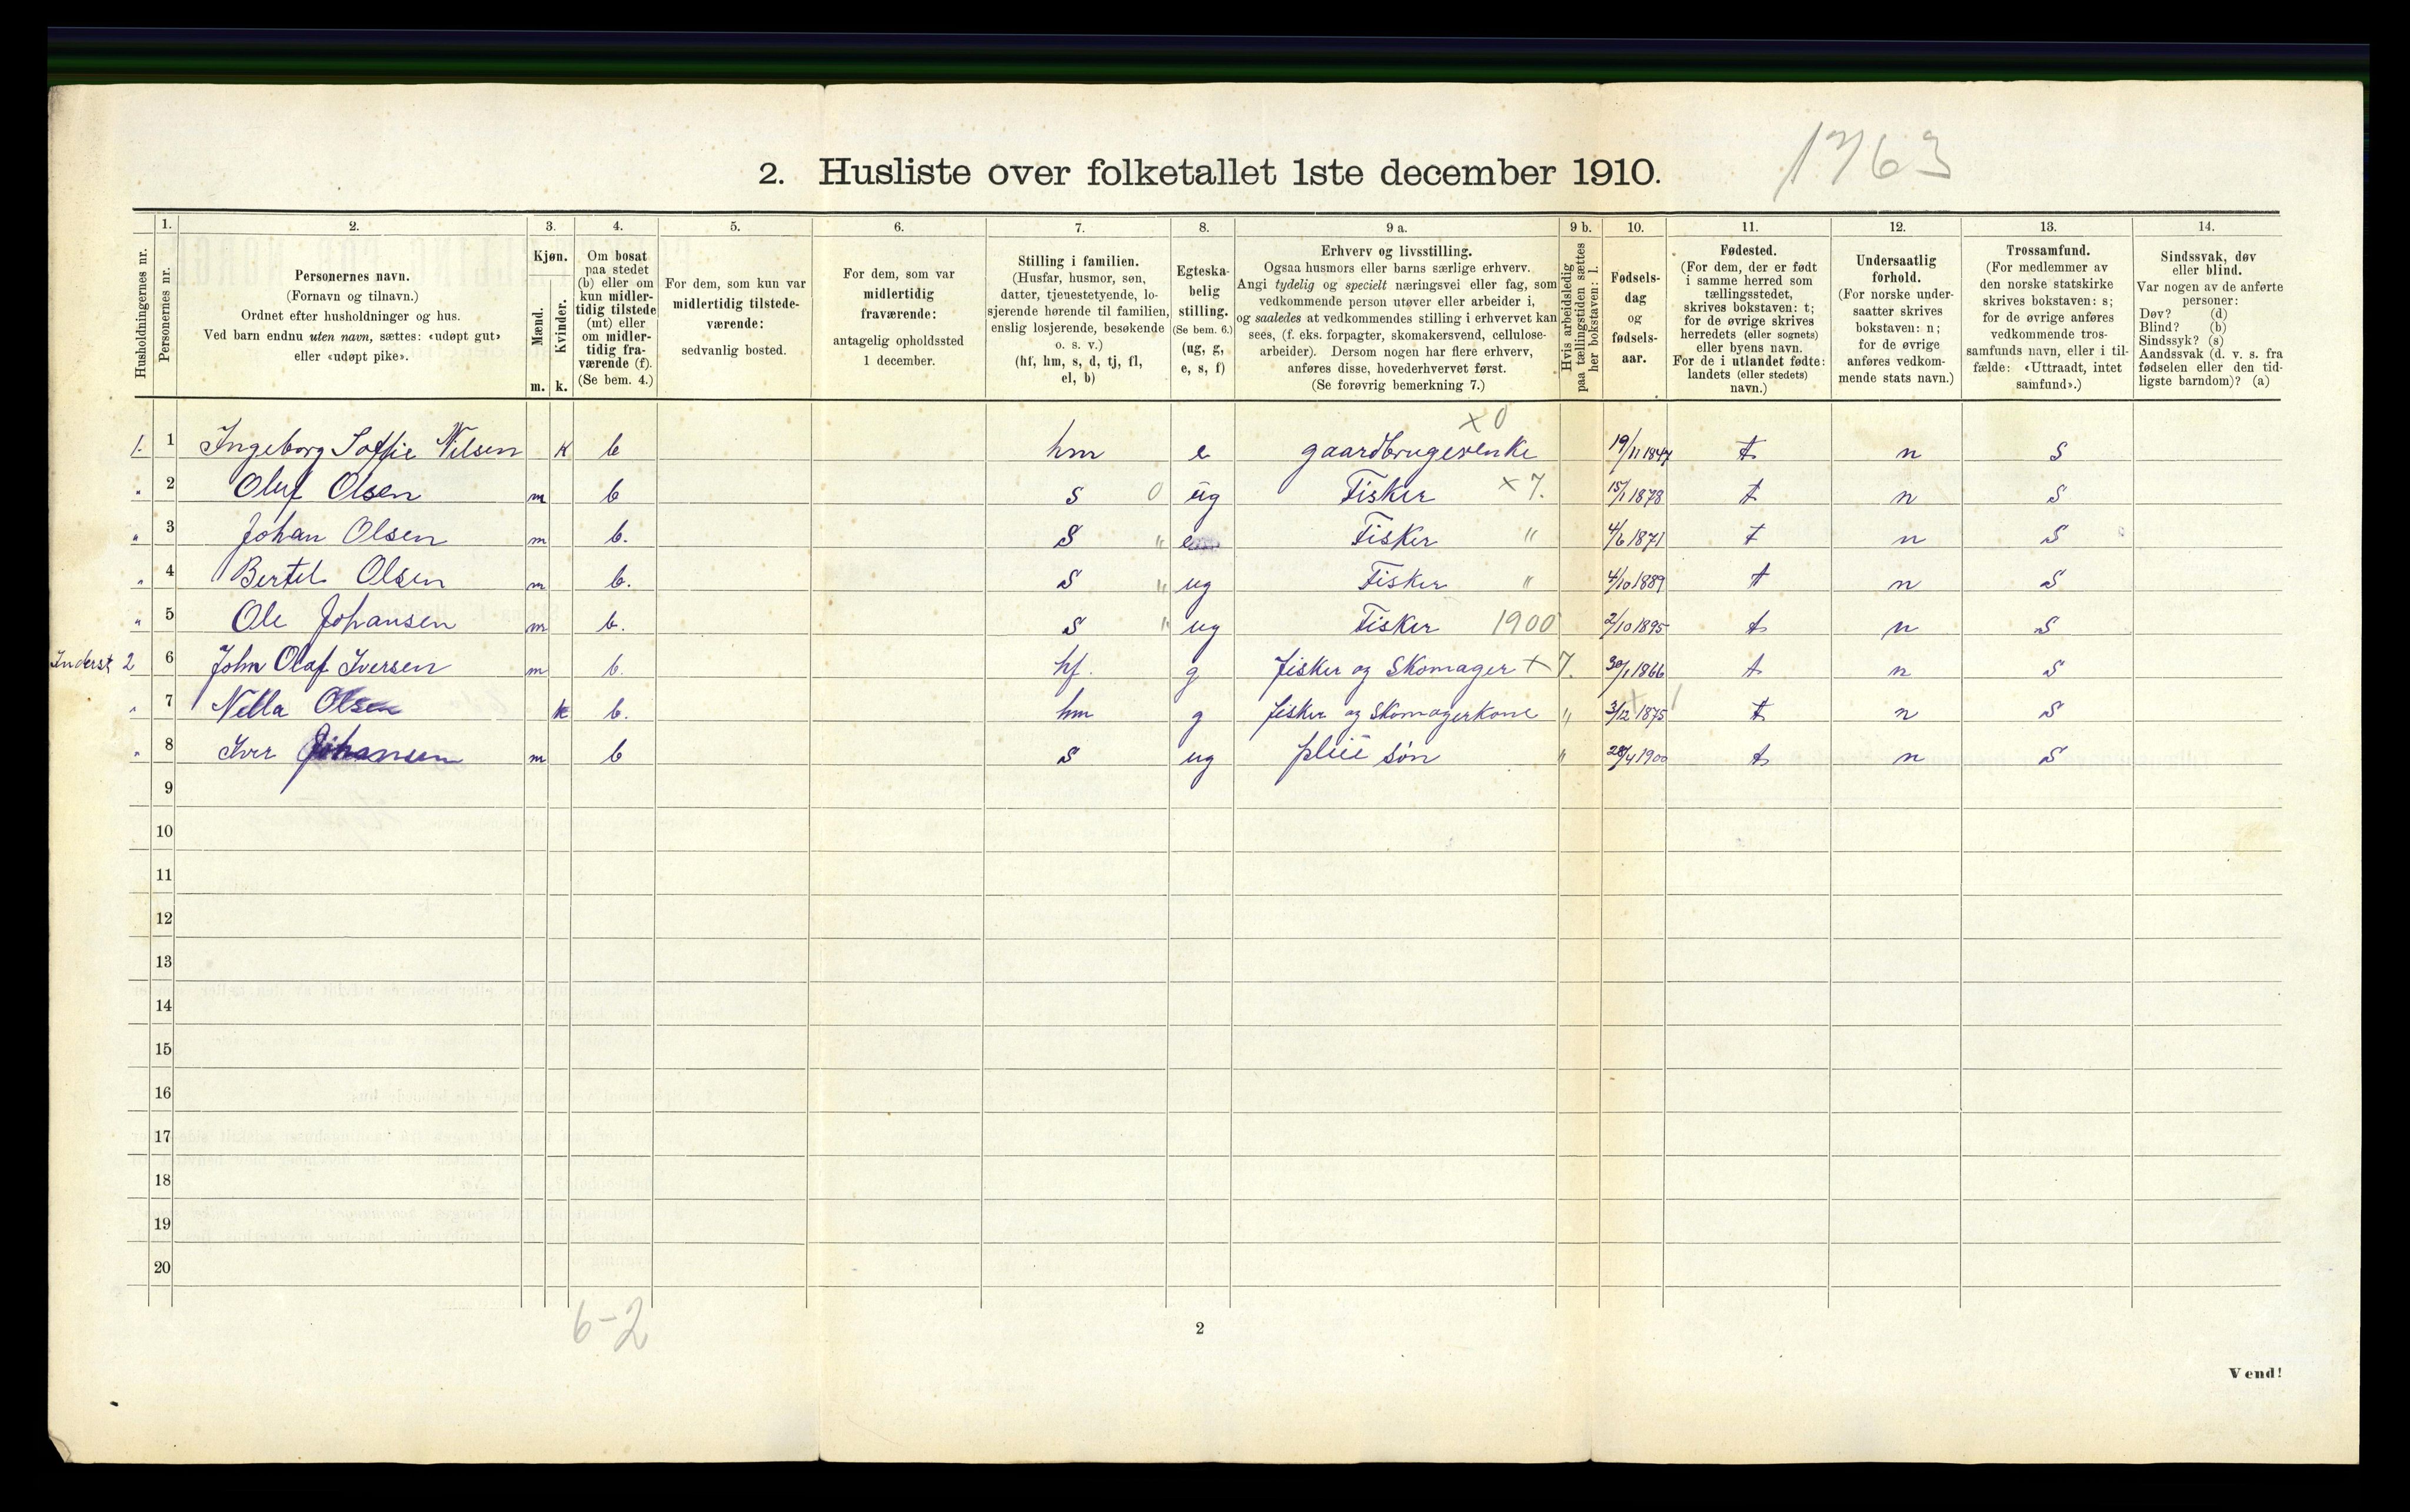 1763
2. Husliste over folketallet 1ste december 1910.
Husholdningernes nr.
1.
Personernes nr.
2.
Personernes navn.
(Fornavn og tilnavn.)
Ordnet efter husholdninger og hus.
Ved barn endnu uten navn, sættes: «udøpt gut»
eller «udøpt pike».
3.
Kjøn.
Mænd.
Kvinder.
m. k.
4.
Om bosat
paa stedet
(b) eller om
kun midler-
tidig tilstede
(mt) eller
om midler-
tidig fra-
værende (f).
(Se bem. 4.)
5.
For dem, som kun var
midlertidig tilstede-
værende:
sedvanlig bosted.
6.
For dem, som var
midlertidig
fraværende:
antagelig opholdssted
1 december.
7.
Stilling i familien.
(Husfar, husmor, søn,
datter, tjenestetyende, lo-
sjerende hørende til familien,
enslig losjerende, besøkende
o. s. v.)
(hf, hm, s, d, tj, fl,
el, b)
8.
Egteska-
belig
stilling.
(Se bem. 6.)
(ug, g,
e, s, f)
9 a.
Erhverv og livsstilling.
Ogsaa husmors eller barns særlige erhverv.
Angi tydelig og specielt næringsvei eller fag, som
vedkommende person utøver eller arbeider i,
og saaledes at vedkommendes stilling i erhvervet kan
sees, (f. eks. forpagter, skomakersvend, cellulose-
arbeider). Dersom nogen har flere erhverv,
anføres disse, hovederhvervet først.
(Se forøvrig bemerkning 7.)
9 b.
Hvis arbeidsledig
paa tællingstiden sættes
her bokstaven: l.
10.
Fødsels-
dag
og
fødsels-
aar.
11.
Fødested.
(For dem, der er født
i samme herred som
tællingsstedet,
skrives bokstaven: t;
for de øvrige skrives
herredets (eller sognets)
eller byens navn.
For de i utlandet fødte:
landets (eller stedets)
navn.)
12.
Undersaatlig
forhold.
(For norske under-
saatter skrives
bokstaven: n;
for de øvrige
anføres vedkom-
mende stats navn.)
13.
Trossamfund.
(For medlemmer av
den norske statskirke
skrives bokstaven: s;
for de øvrige anføres
vedkommende tros-
samfunds navn, eller i til-
fælde: «Uttraadt, intet
samfund».)
14.
Sindssvak, døv
eller blind.
Var nogen av de anførte
personer:
Døv? (d)
Blind? (b)
Sindssyk? (s)
Aandssvak (d. v. s. fra
fødselen eller den tid-
ligste barndom)? (a)
x 0
1. 1 Ingeborg Soffie Nilsen k b hm e gaardbrugerenke 19/11 1847 t n s
" 2 Oluf Olsen m b s 0 ug Fisker x 7. 15/1 1878 t n s
" 3 Johan Olsen m b. s " e Fisker " 4/6 1871 t n s
" 4 Bertel Olsen m b. s " ug Fisker " 4/10 1889 t n s
" 5 Ole Johansen m b. s " ug Fisker 1900 2/10 1895 t n s
Inderst 2 6 John Olaf Iversen m b. hf. g fisker og Skomager x 7. 30/1 1866 t n s
" 7 Nella Olsen k b. hm g fisker og Skomagerkone " 3/12 1875 t n s
" 8 Iver Johansen m b s ug pleie søn " 28/4 1900 t n s
9
10
11
12
13
14
15
16
17
18
19
20
6-2
2
Vend!